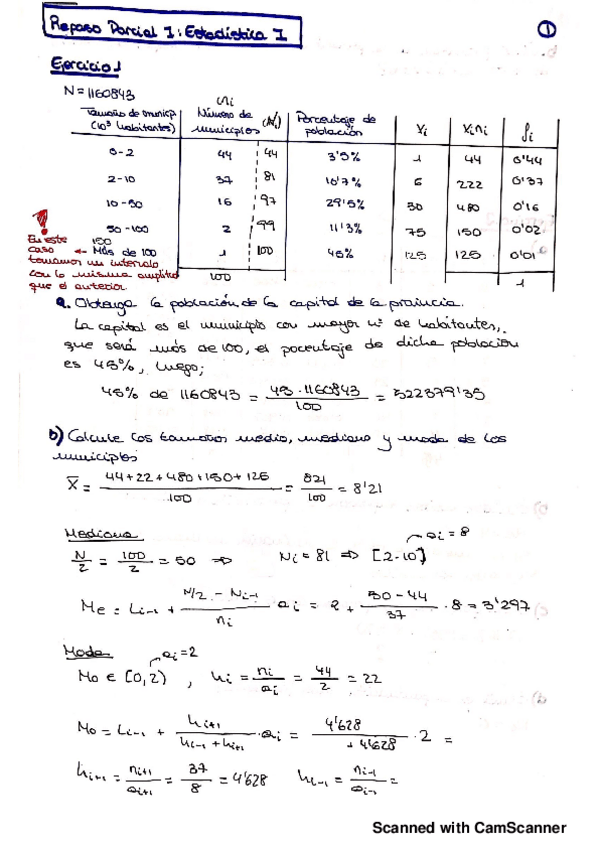 Repaso Parcial 1: Estadística I
1
Ejercicio 1
N = 1160843
ni
Tamaño de municip (10³ habitantes) Número de municipios (Ni) Porcentaje de población xi xini fi
0-2 44 44 3'5% 1 44 0'44
2-10 37 81 10'7% 6 222 0'37
10-50 16 97 29'5% 30 480 0'16
50-100 2 99 11'3% 75 150 0'02
150
← Más de 100 1 100 45% 125 125 0'01
100 1
! En este
caso
tomamos un intervalo
con la misma amplitud
que el anterior.
a. Obtenga la población de la capital de la provincia.
La capital es el municipio con mayor nº de habitantes,
que será más de 100, el porcentaje de dicha población
es 45%, luego;
45% de 1160843 = 45 · 1160843 / 100 = 522379'35
b) Calcule los tamaños medio, mediano y moda de los
municipios
x̄ = 44+22+480+150+125 / 100 = 821 / 100 = 8'21
Mediana
ai = 8
N/2 = 100/2 = 50 ⇒ Ni = 81 ⇒ [2-10]
Me = Li-1 + N/2 - Ni-1 / ni · ai = 2 + 50-44 / 37 · 8 = 3'297
Moda
ai = 2
Mo ∈ [0,2) , hi = ni/ai = 44/2 = 22
Mo = Li-1 + hi+1 / hi-1 + hi+1 · ai = 4'628 / + 4'628 · 2 =
hi+1 = ni+1/ai+1 = 37/8 = 4'628 hi-1 = ni-1/ai-1 =
Scanned with CamScanner